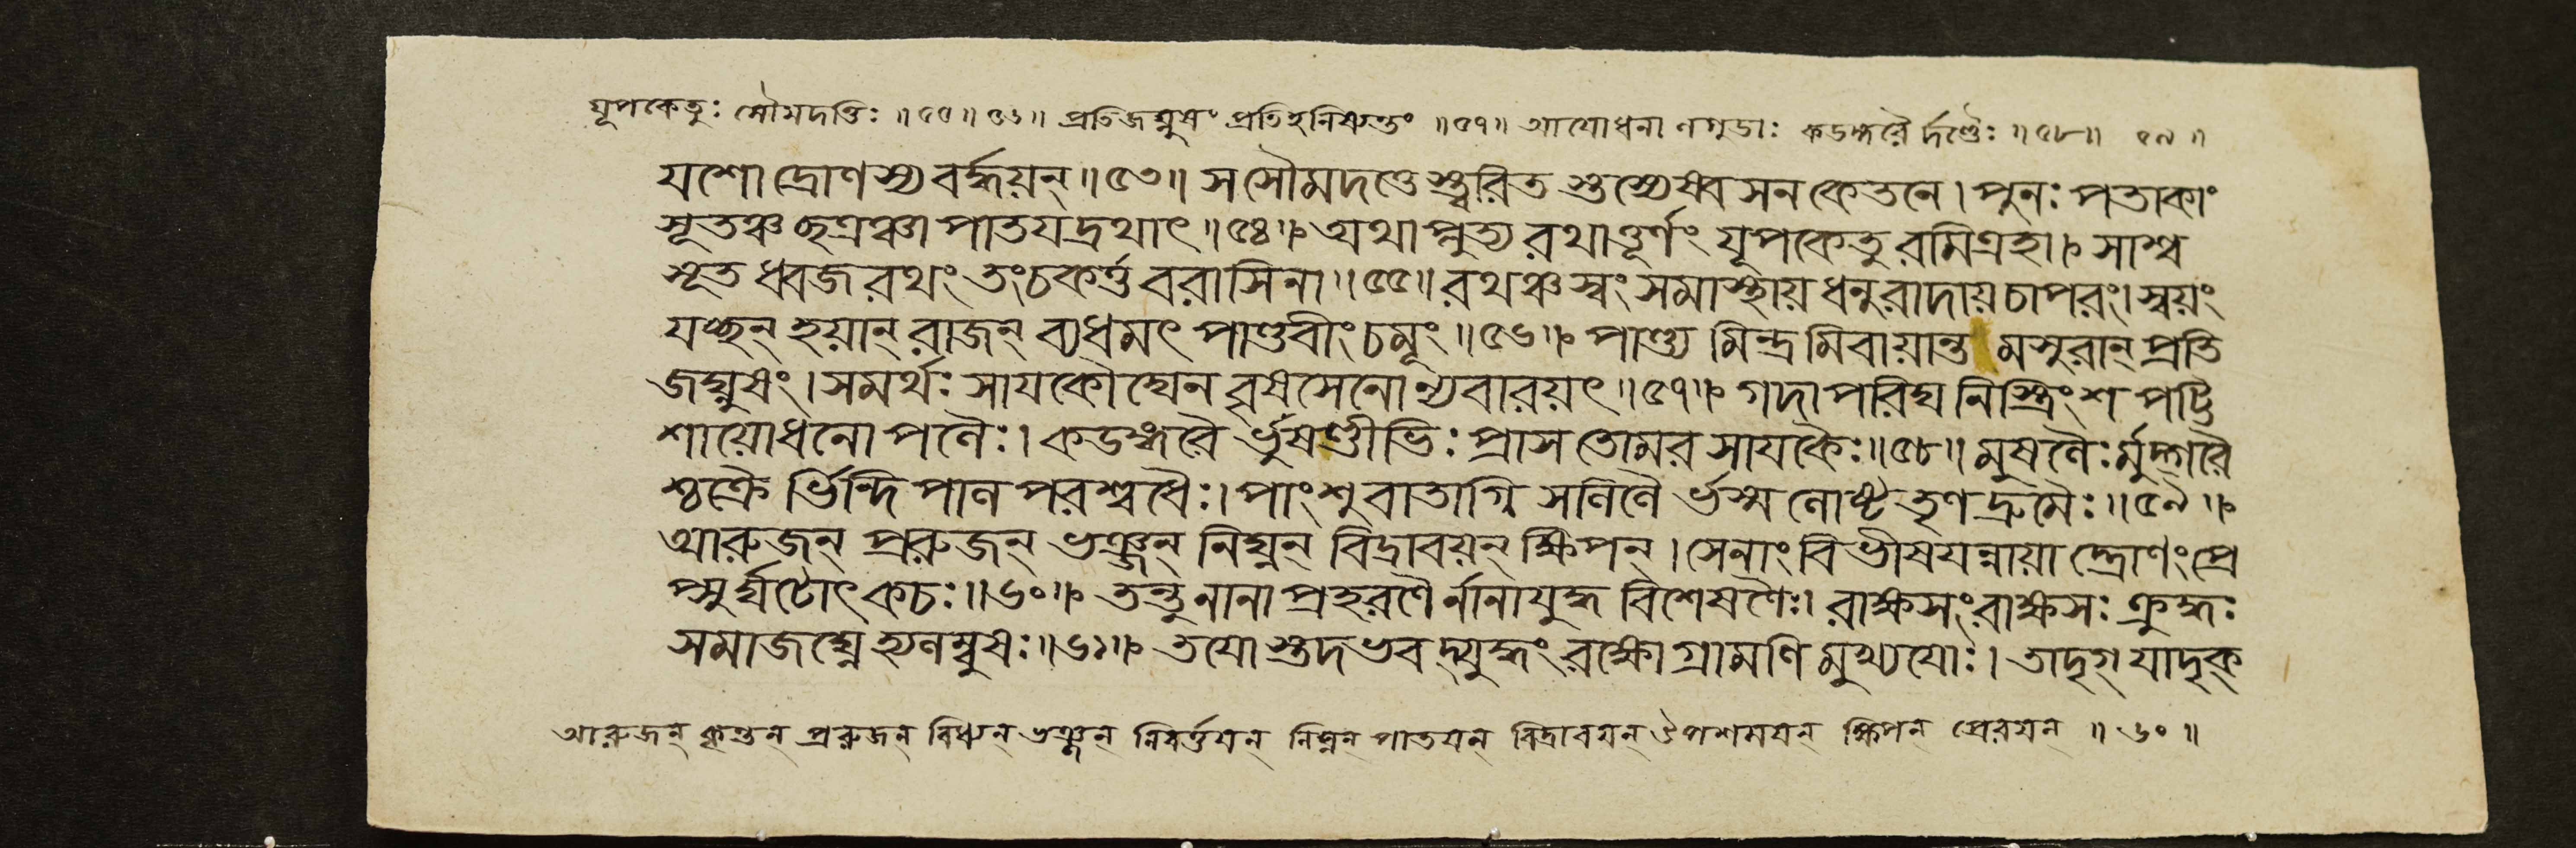 যূপকেতুঃ সৌমদত্তিঃ ॥৫৫॥ ৫৬॥ প্রতিজঘ্নুষং প্রতিহনিষ্যন্তং ॥৫৭॥ আযোধনা ণগুডাঃ কডঙ্গরৈ র্দণ্ডৈঃ ॥৫৮॥ ৫৯॥
যশো দ্রোণস্য বর্দ্ধয়ন্ ॥৫৩॥ স সৌমদত্তে স্ত্বরিত শ্তুস্যেষ্বসন কেতনে। পুনঃ পতাকাং
সূতঞ্চ ছত্রঞ্চা পাতযদ্রথাৎ ॥৫৪॥ অথাপ্লুত্য রথাত্তূর্ণং যূপকেতু রমিত্রহা। সাশ্ব
সূত ধ্বজ রথং তং চকর্ত্ত বরাসিনা ॥৫৫॥ রথঞ্চ স্বং সমাস্থায় ধনুরাদায় চাপরং। স্বয়ং
যচ্ছন্ হয়ান্ রাজন্ ব্যধমৎ পাণ্ডবীং চমূং ॥৫৬॥ পাণ্ড্য মিন্দ্র মিবায়ান্ত মসুরান্ প্রতি
জঘ্নুষং। সমর্থঃ সাযকৌঘেন বৃষসেনো ণ্যবারয়ৎ ॥৫৭॥ গদা পরিঘ নিস্ত্রিংশ পট্টি
শায়োধনো পলৈঃ। কডঙ্গরৈ র্ভুষণ্ডীভিঃ প্রাস তোমর সাযকৈঃ ॥৫৮॥ মুষলৈঃ র্মুদ্গরৈ
শ্চক্রৈ র্ভিন্দিপাল পরশ্বধৈঃ। পাংশু বাতাগ্নি সলিলৈ র্ভস্ম লোষ্ট তৃণ দ্রুমৈঃ ॥৫৯॥
আরুজন্ প্ররুজন্ ভঞ্জন্ নিঘ্নন্ বিদ্রাবয়ন্ ক্ষিপন্। সেনাং বিভীষযন্নায়া দ্দ্রোণং প্রে
প্সুর্ঘটোৎকচঃ ॥৬০॥ তন্তু নানা প্রহরণৈ র্নানাযুদ্ধ বিশেষণৈঃ। রাক্ষসং রাক্ষসঃ ক্রুদ্ধঃ
সমাজঘ্নে হ্যলম্বুষঃ ॥৬১॥ তযো স্তদভবদ্যুদ্ধং রক্ষো গ্রামণি মুখ্যযোঃ। তাদৃগ্ যাদৃক্
আরুজন্ কৃণ্তন্ প্ররুজন্ বিধ্যন্ ভঞ্জন্ নিবর্ত্তযন্ নিঘ্নন্ পাতযন্ বিদ্রাবযন্ ঔপশমযন্ ক্ষিপন্ প্রেরযন্ ॥৬০॥